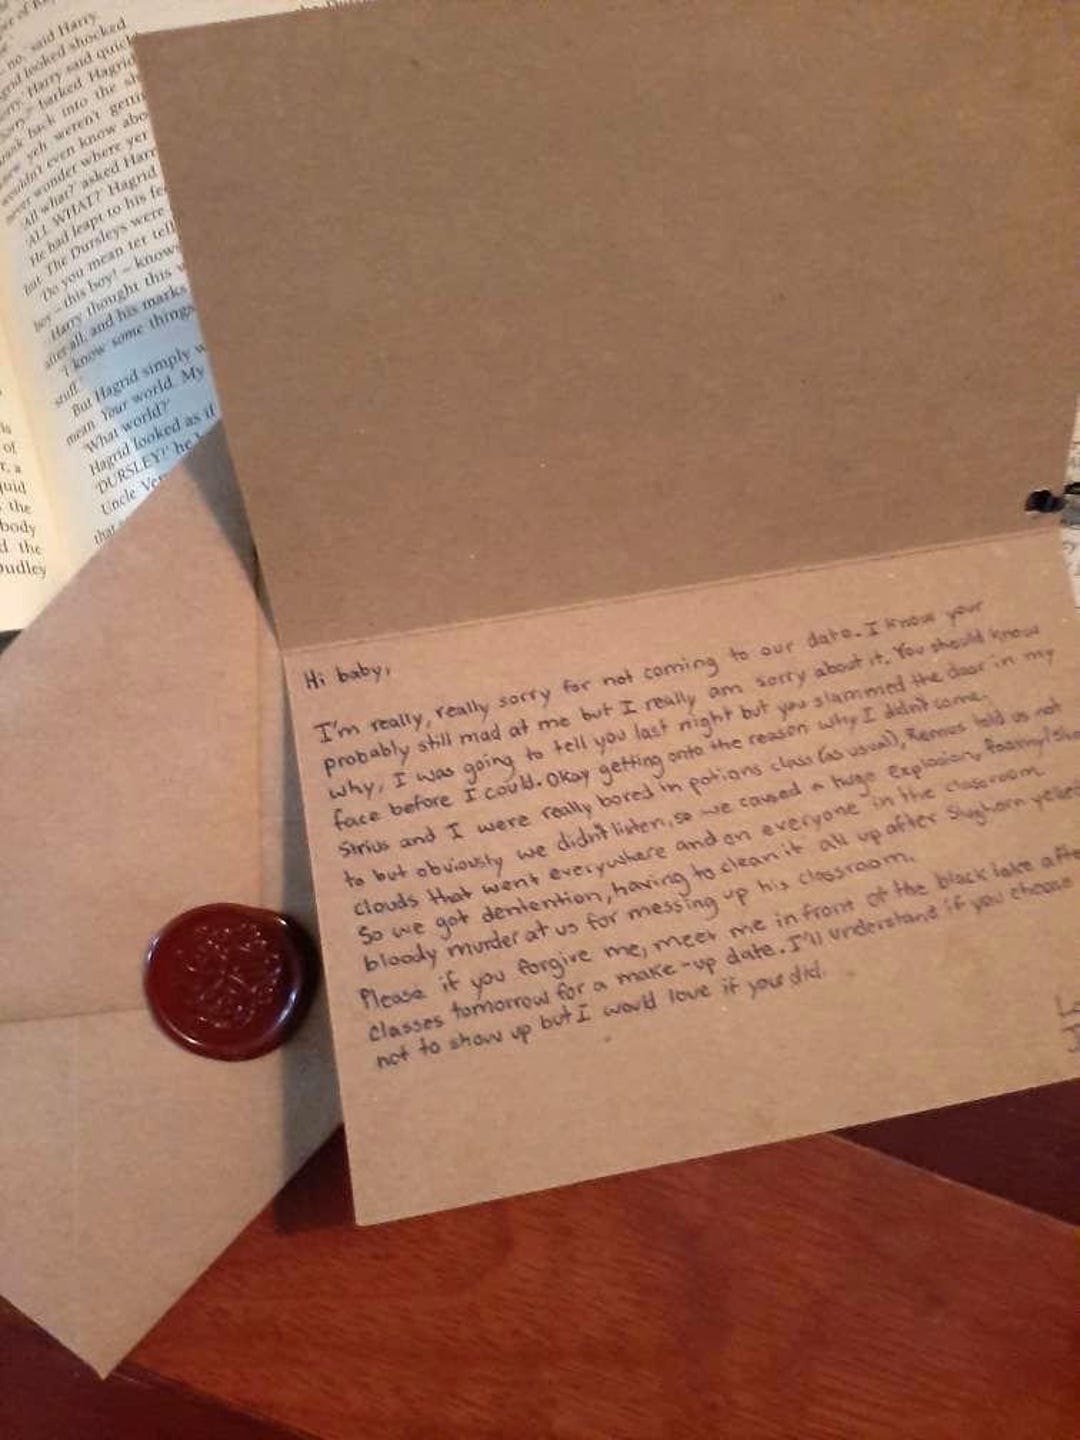 no,' said Harry.
Hagrid looked shocked
Harry said quick
barked Hagrid
back into the sh
yeh weren't gettin
wouldn't even know abo
never wonder where yer
'All what?' asked Harr
'ALL WHAT?' Hagrid
He had leapt to his fe
hut. The Dursleys were
'Do you mean ter tell
boy – this boy! – knows
Harry thought this w
after all, and his marks
'I know some things
stuff.'
But Hagrid simply w
mean. Your world. My
'What world?'
Hagrid looked as if
'DURSLEY!' he
Uncle Ver
that
of
r, a
quid
the
body
d the
Dudley
Hi baby,
I'm really, really sorry for not coming to our date. I know your
probably still mad at me but I really am sorry about it. You should know
why, I was going to tell you last night but you slammed the door in my
face before I could. Okay getting onto the reason why I didn't come.
Sirius and I were really bored in potions class (as usual), Remus told us not
to but obviously we didn't listen, so we caused a huge explosion, foamy/
clouds that went everywhere and on everyone in the classroom.
So we got dentention, having to clean it all up after Slughorn yelled
bloody murder at us for messing up his classroom.
Please if you forgive me, meet me in front of the black lake afte
classes tomorrow for a make-up date. I'll understand if you choose
not to show up but I would love if you did.